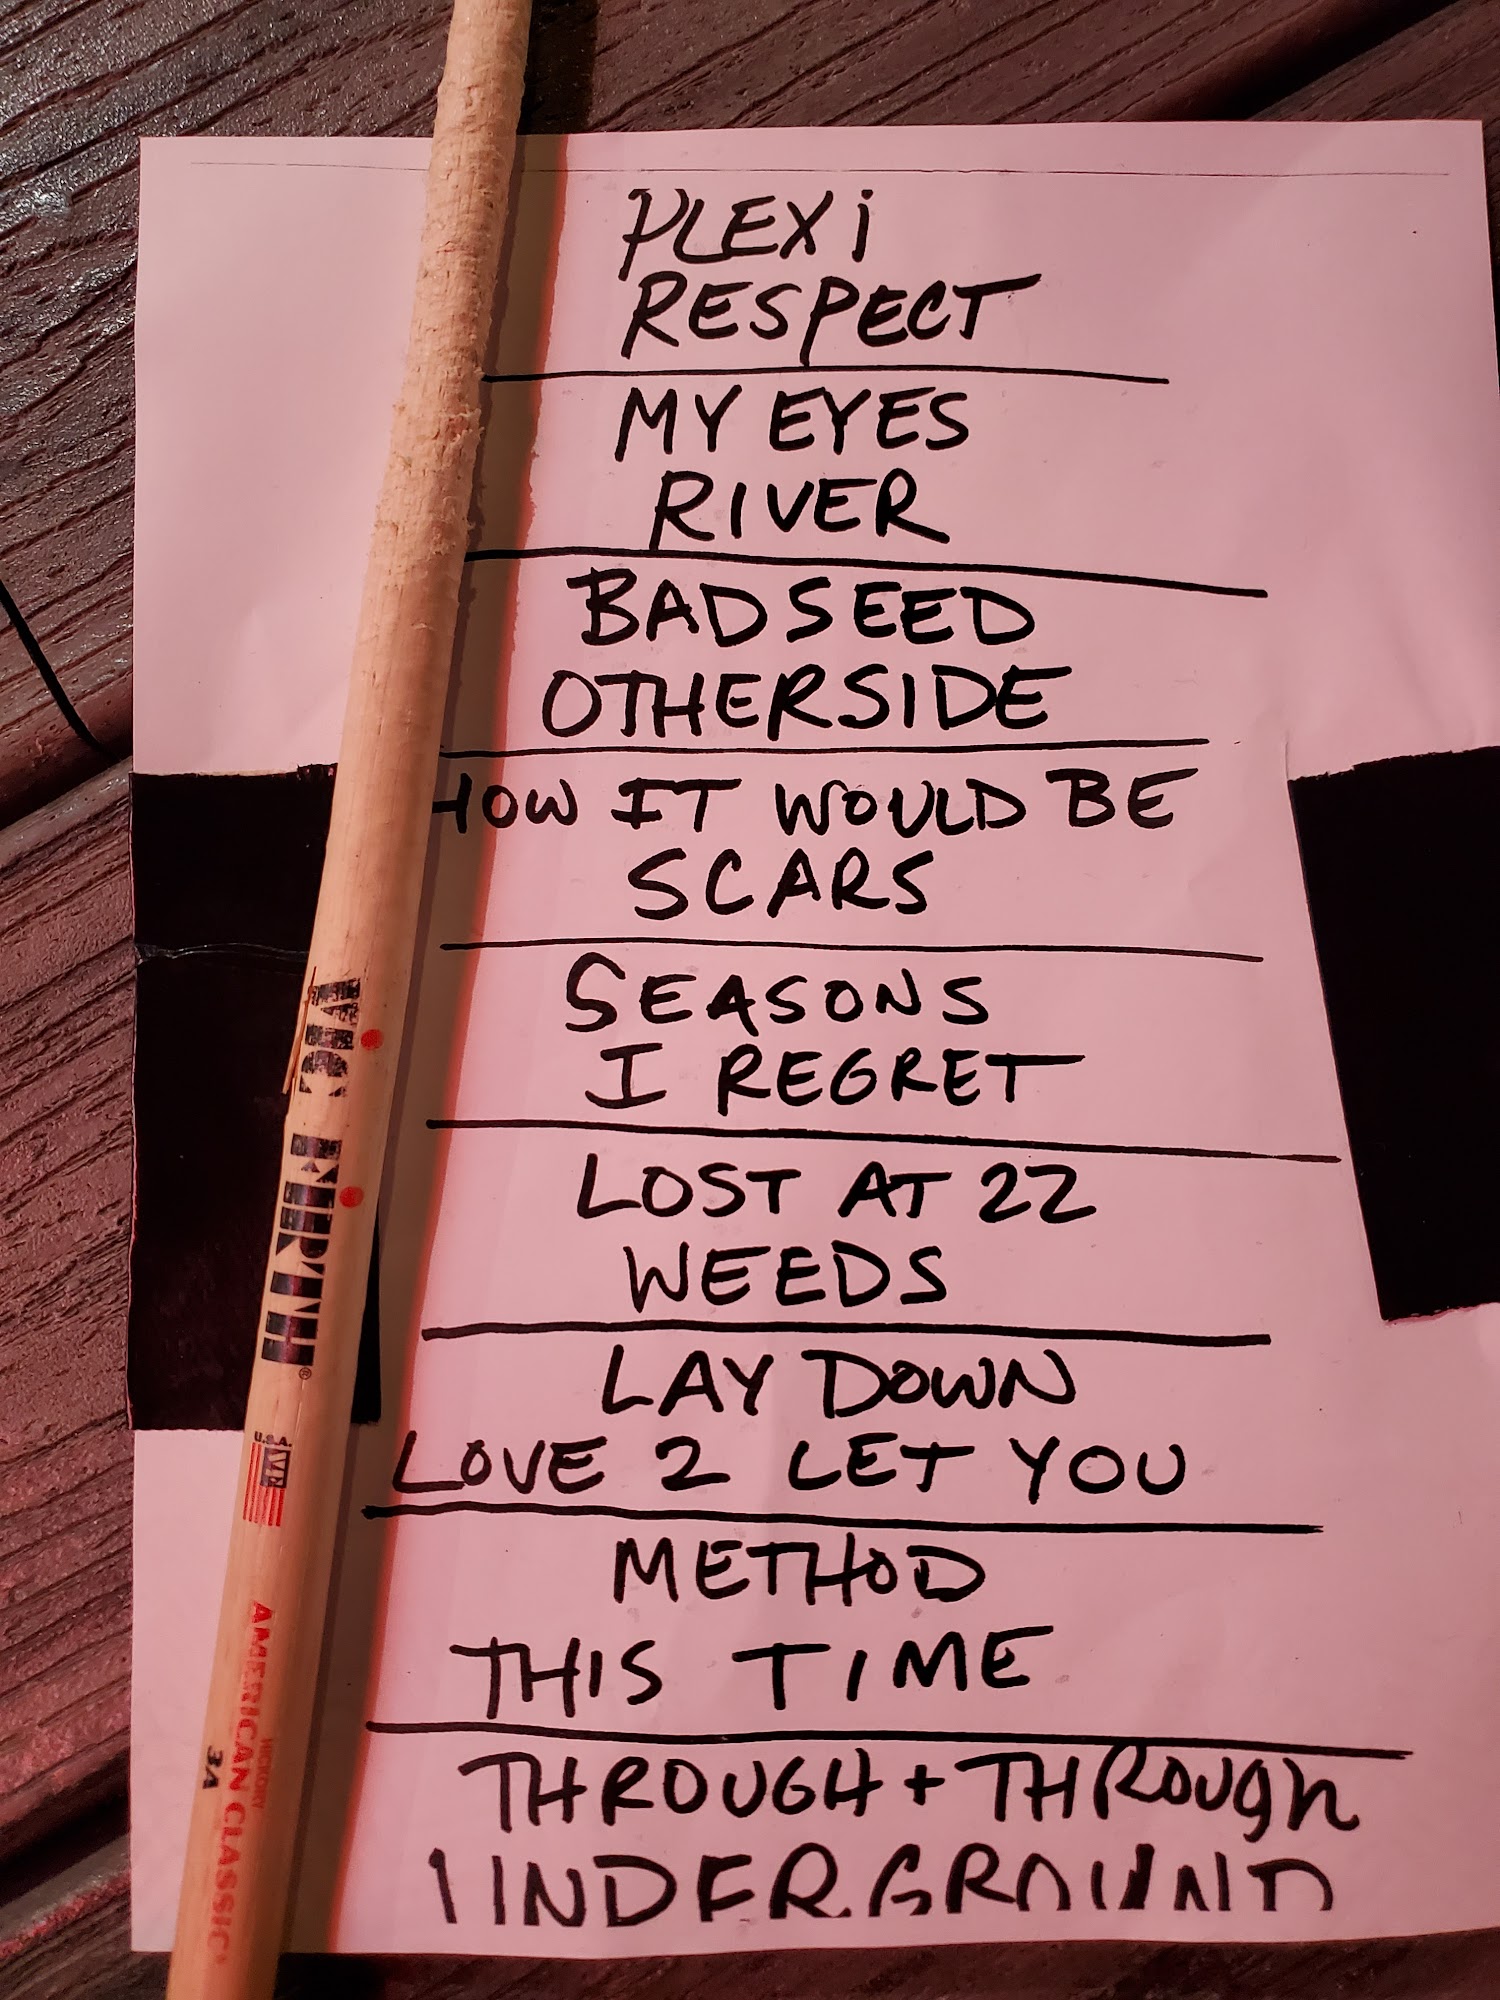 PLEXi
RESPECT
MY EYES
RIVER
BAD SEED
OTHERSIDE
HOW IT WOULD BE
SCARS
SEASONS
I REGRET
LOST AT 22
WEEDS
LAY DOWN
LOVE 2 LET YOU
METHOD
THIS TIME
THROUGH + THROUGH
UNDERGROUND
VIC FIRTH®
U.S.A.
HICKORY
AMERICAN CLASSIC
3A